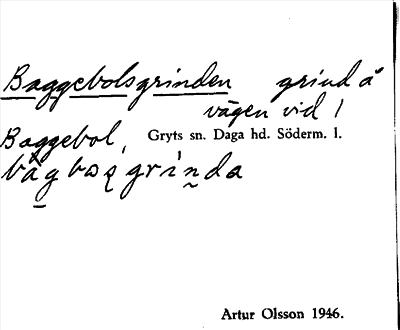 Baggebolsgrinden grind å
vägen vid
Baggebol, Gryts sn. Daga hd. Söderm. l.
Artur Olsson 1946.